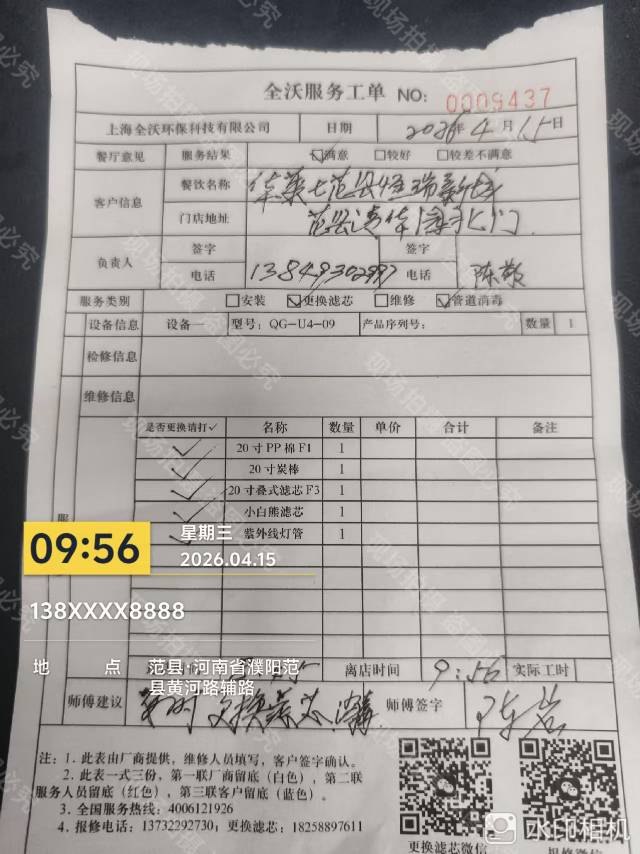 全沃服务工单 NO: 0009437
上海全沃环保科技有限公司 日期 2026年4月15日
餐厅意见 服务结果 ☑满意 □较好 □较差不满意
客户信息 餐饮名称 华莱士范县恒瑞新城
门店地址 范县清华园北门
负责人 签字 签字
电话 13849302997 电话 陈敬
服务类别 □安装 ☑更换滤芯 □维修 ☑管道消毒
设备信息 设备 型号: QG-U4-09 产品序列号: 数量 1
检修信息
维修信息
是否更换请打✓ 名称 数量 单价 合计 备注
✓ 20寸PP棉F1 1
✓ 20寸炭棒 1
✓ 20寸叠式滤芯F3 1
✓ 小白熊滤芯 1
✓ 紫外线灯管 1
服
09:56 星期三
2026.04.15
138XXXX8888
地 点 范县·河南省濮阳范
县黄河路辅路
离店时间 9:56 实际工时
师傅建议 更换滤芯 师傅签字 陈岩
注: 1. 此表由厂商提供, 维修人员填写, 客户签字确认。
2. 此表一式三份, 第一联厂商留底 (白色), 第二联
服务人员留底 (红色), 第三联客户留底 (蓝色)。
3. 全国服务热线: 4006121926
4. 报修电话: 13732292730; 更换滤芯: 18258897611
更换滤芯微信 报修微信
水印相机